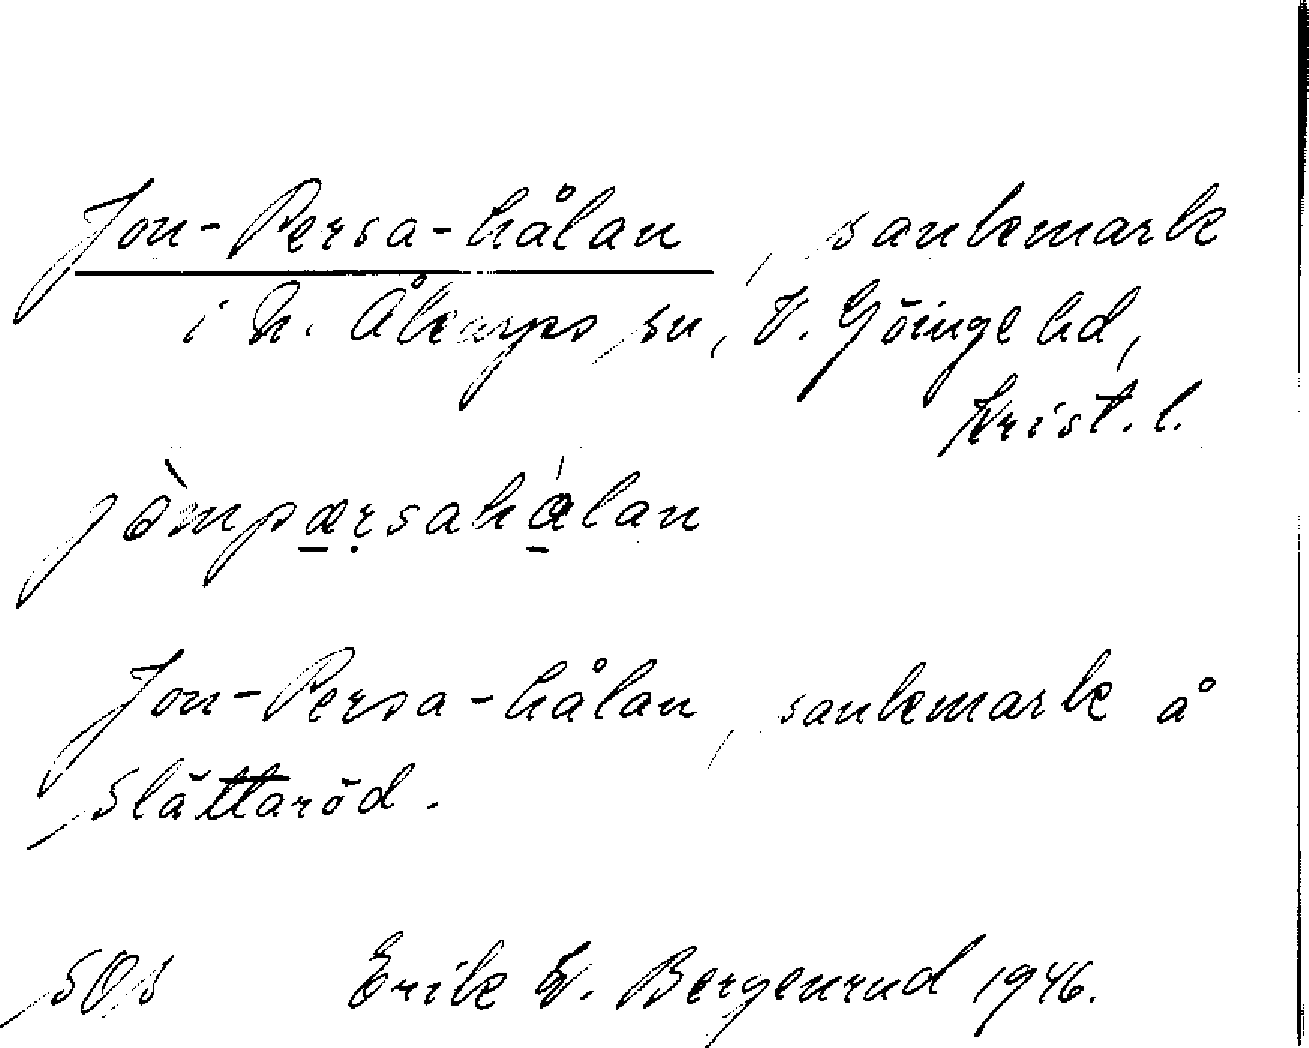 Jon-Persa-hålan, sankmark
i N. Åkarps sn, V. Göinge hd,
Krist. l.
jòmpærsahálan
Jon-Persa-hålan, sankmark å
Slättaröd.
SOS Erik V. Bergenrud 1946.